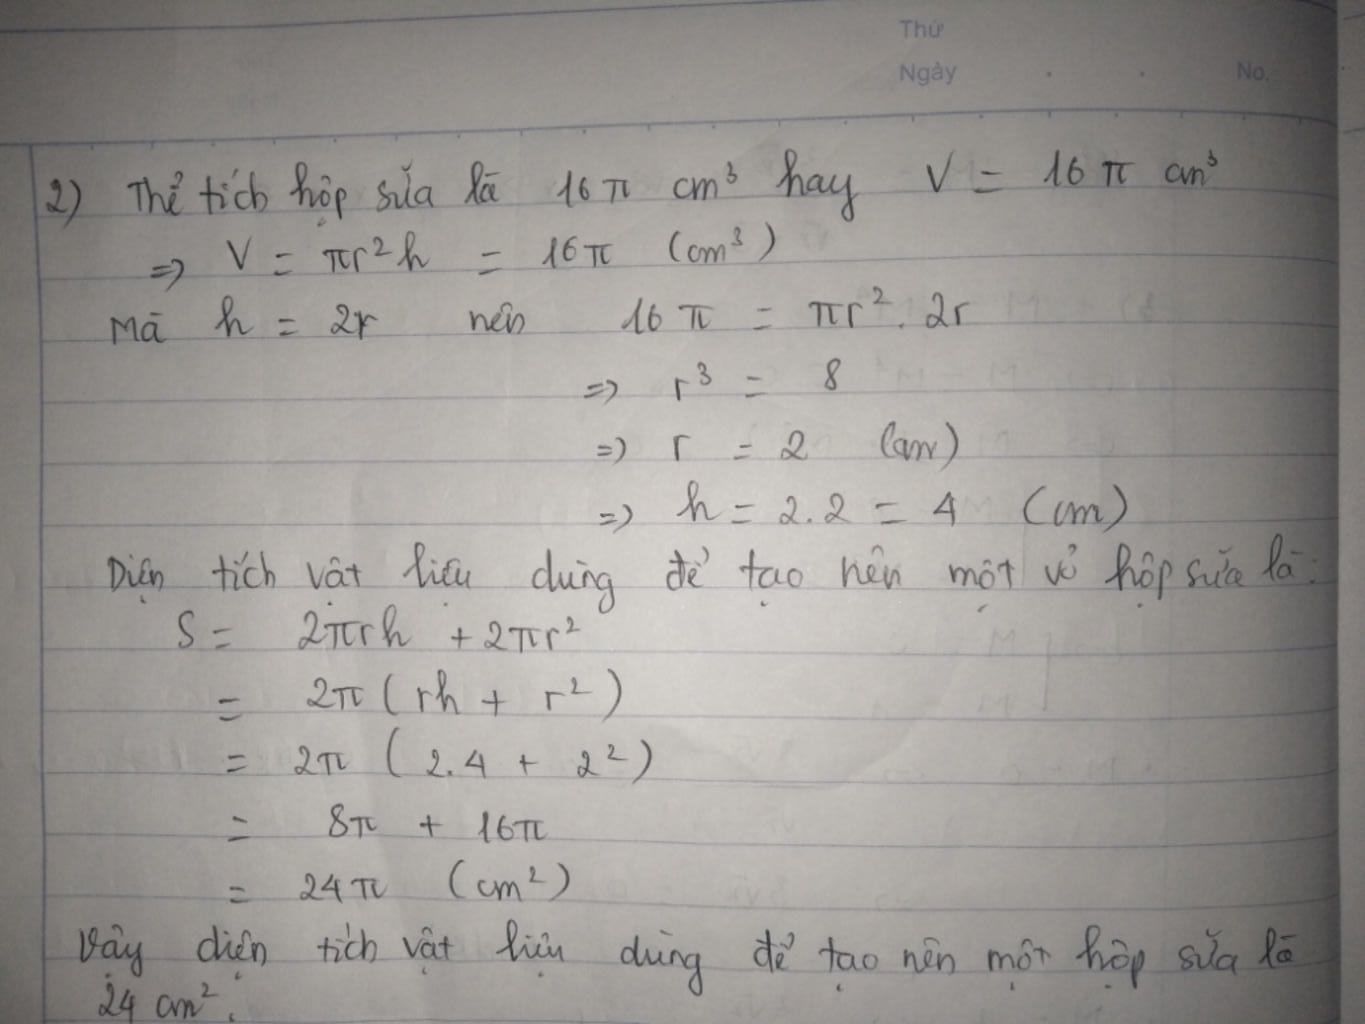 Thứ
Ngày . . No.
2) Thể tích hộp sữa là 16π cm³ hay V = 16π cm³
=> V = πr²h = 16π (cm³)
Mà h = 2r nên 16π = πr². 2r
=> r³ = 8
=> r = 2 (cm)
=> h = 2.2 = 4 (cm)
Diện tích vật liệu dùng để tạo nên một vỏ hộp sữa là:
S = 2πrh + 2πr²
= 2π (rh + r²)
= 2π (2.4 + 2²)
= 8π + 16π
= 24π (cm²)
Vậy diện tích vật liệu dùng để tạo nên một hộp sữa là
24 cm².